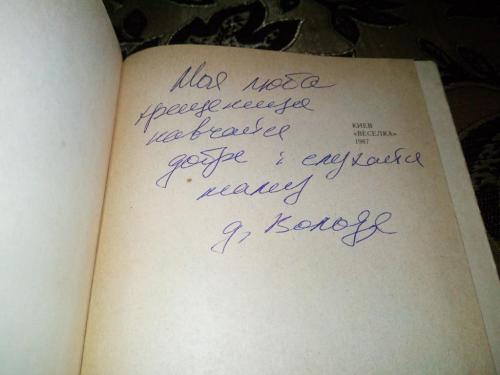 Моя люба
хрещениця
навчайся
добре і слухайся
маму
д, Володя
КИЕВ
«ВЕСЕЛКА»
1987